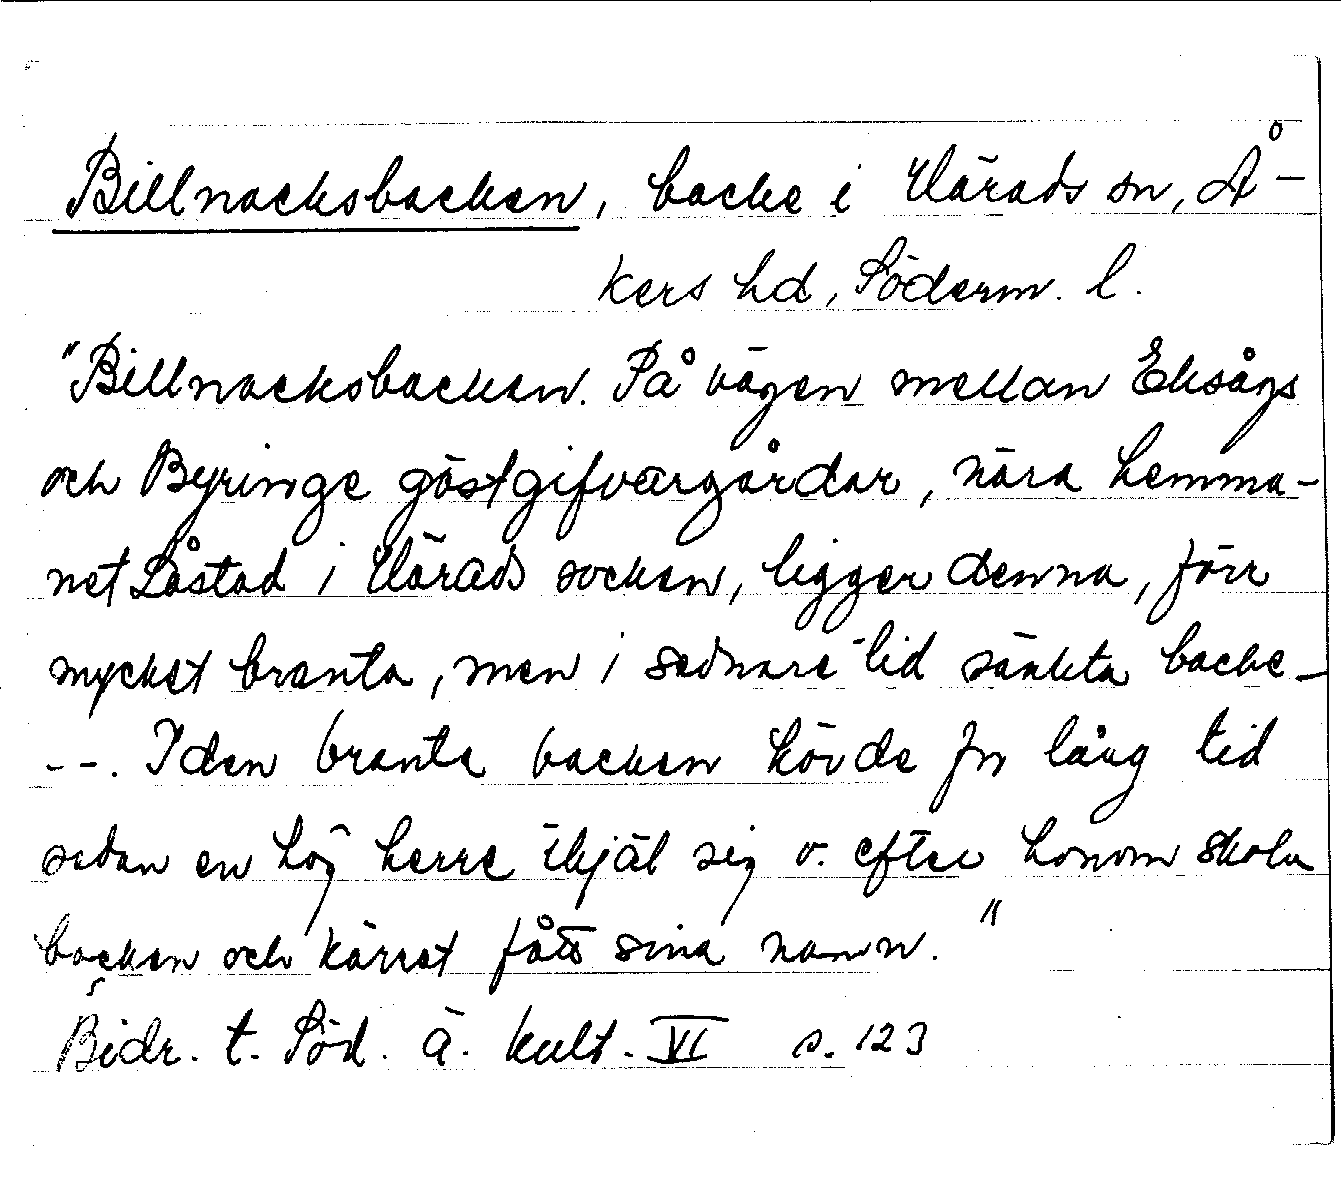 Billnacksbacken, backe i Vårads sn, Å-
kers hd, Söderm. l.
"Billnacksbacken. På vägen mellan Eksågs
och Byringe gästgifvaregårdar, nära hemma-
net Låstad i Vårads socken, ligger denna, förr
mycket branta, men i sednare tid sänkta backe -
--. I den branta backen körde för lång tid
sedan en hög herre ihjäl sig o. efter honom skola
backen och kärret fått sina namn."
Bidr. t. Söd. ä. kult. VI s. 123